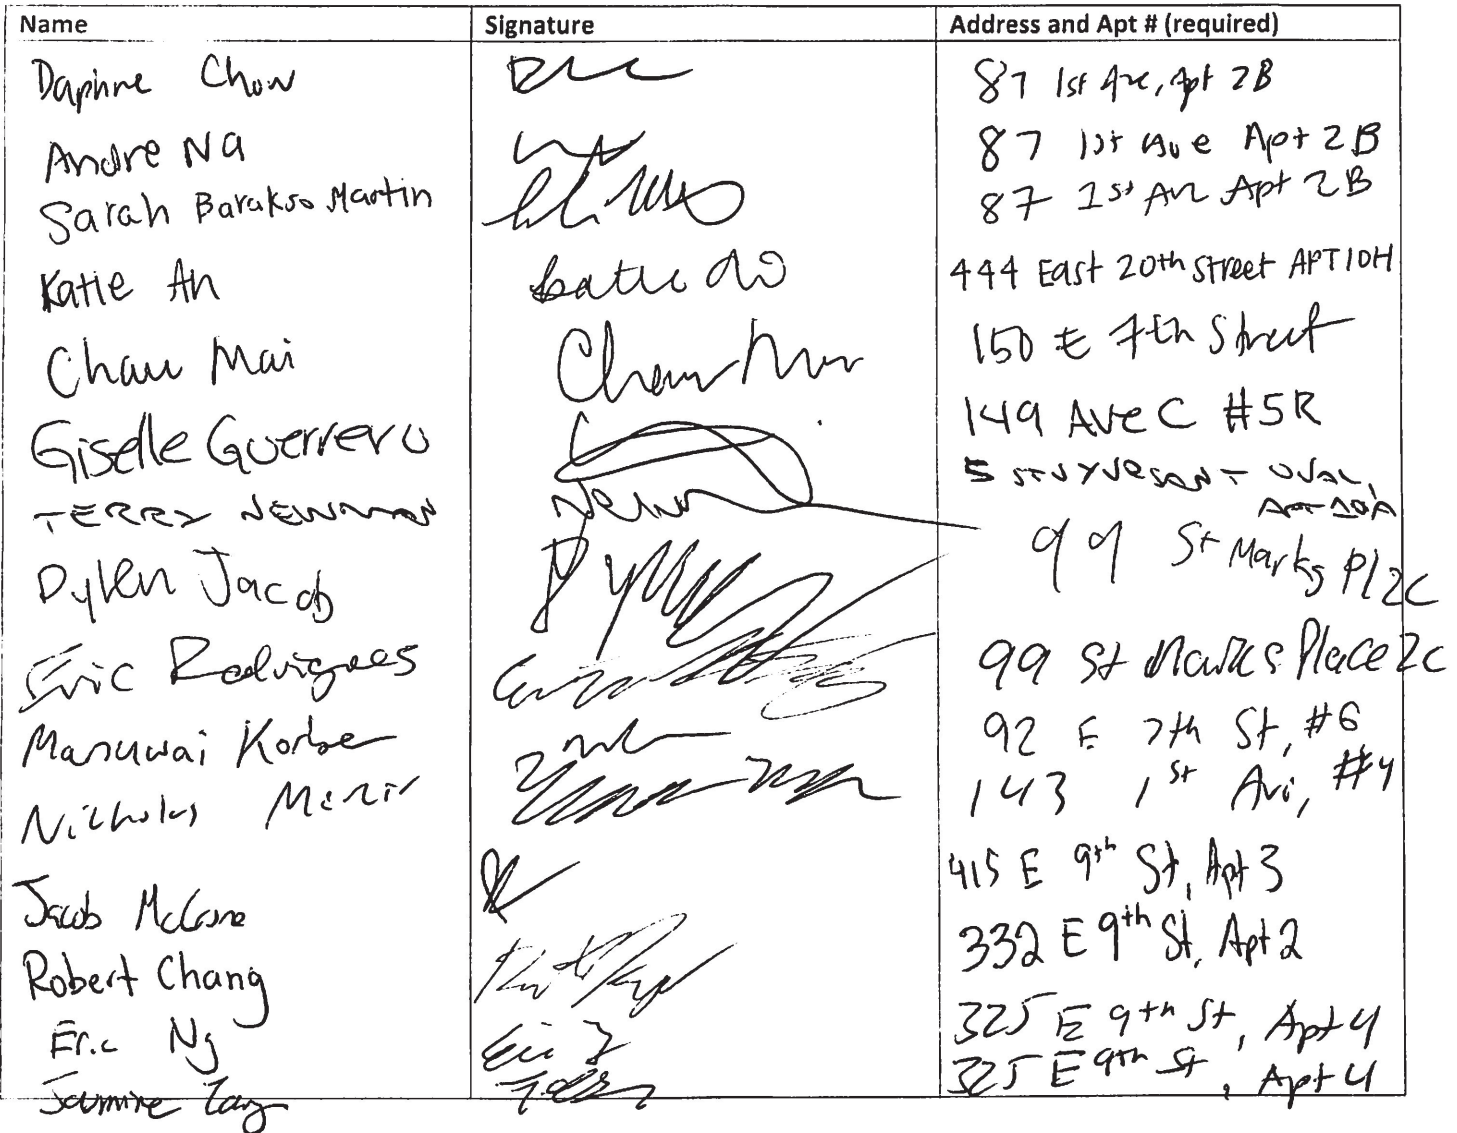 Name Signature Address and Apt # (required)
Daphne Chow 87 1st Ave, Apt 2B
Andre Na 87 1st Ave Apt 2B
Sarah Barakso Martin 87 1st Ave Apt 2B
Katie An 444 East 20th Street APT 10H
Chau Mai Chau Mai 150 E 7th Street
Giselle Guerrero 149 Ave C #5R
TERRY NEWMAN 5 STUYVESANT OVAL,
Apt 10A
Dylen Jacob 99 St Marks Pl 2C
Eric Rodrigues 99 St Marks Place 2C
Manuwai Korber 92 E 7th St, #6
Nicholas 143 1st Ave, #4
Jacob McCrone 415 E 9th St, Apt 3
Robert Chang 332 E 9th St, Apt 2
Eric Ng 325 E 9th St, Apt 4
Jasmine Zang 325 E 9th St, Apt 4